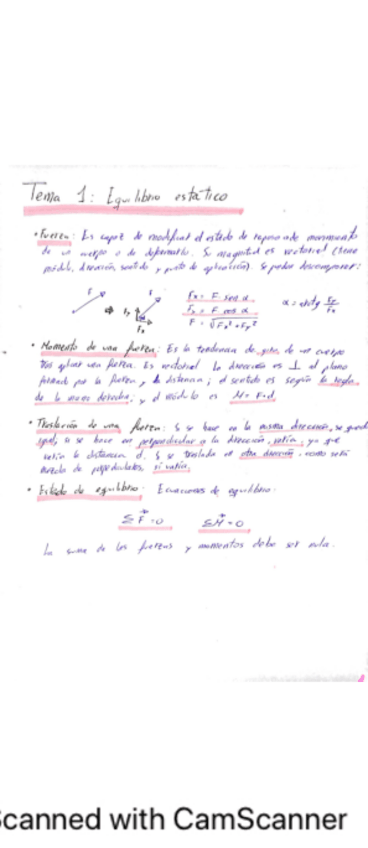 Tema 1: Equilibrio estático
• Fuerza: Es capaz de modificar el estado de reposo o de movimiento
de un cuerpo o de deformarlo. Su magnitud es vectorial (tiene
módulo, dirección, sentido y punto de aplicación). Se puede descomponer:
F F Fy Fx
Fx = F · sen α
Fy = F cos α
F = √Fx² + Fy²
α = Fy/Fx
• Momento de una fuerza: Es la tendencia de giro de un cuerpo
tras aplicar una fuerza. Es vectorial. La dirección es ⊥ al plano
formado por la fuerza y la distancia; el sentido es según la regla
de la mano derecha; y el módulo es M = F·d.
• Traslación de una fuerza: Si se hace en la misma dirección, se queda
igual, si se hace en perpendicular a la dirección, varía, ya que
varía la distancia d. Si se traslada en otra dirección, como será
mezcla de perpendiculares, sí varía.
• Estado de equilibrio: Ecuaciones de equilibrio:
ΣF = 0 ΣM = 0
La suma de las fuerzas y momentos debe ser nula.
Scanned with CamScanner